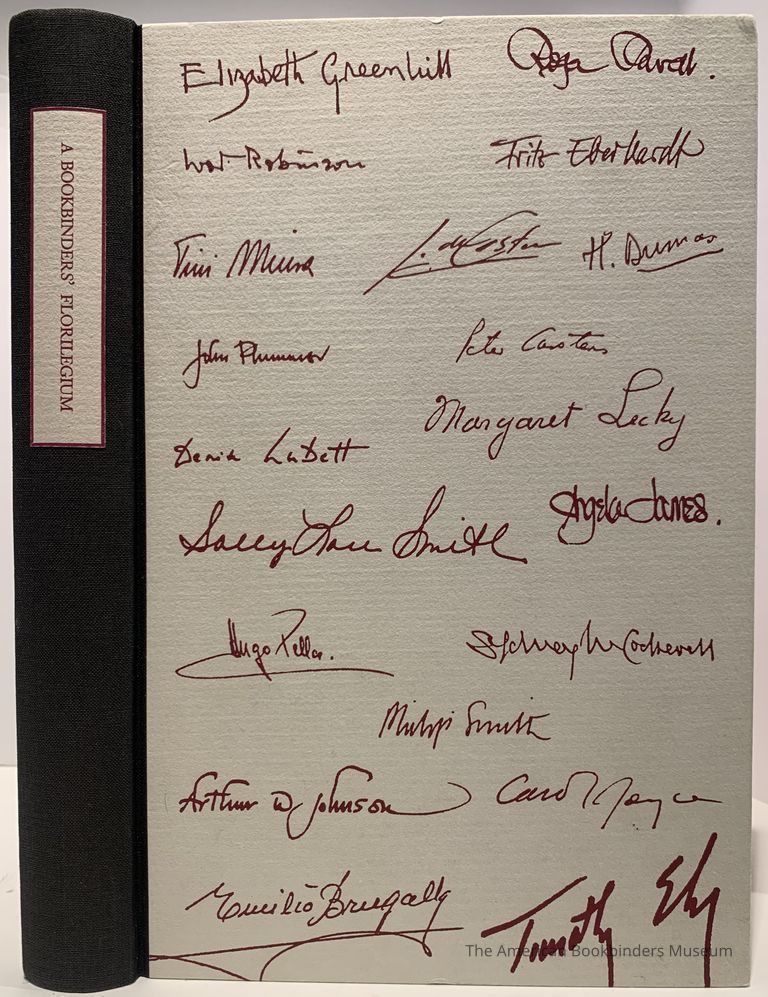 A BOOKBINDERS' FLORILEGIUM
Elizabeth Greenhill
Roger Powell.
Fritz Eberhardt
Tini Miura
H. Dumas
John Plummer
Peter Carstens
Margaret Lecky
Denise Lubett
Sally Lou Smith
Angela James.
Hugo Peller.
Sydney M Cockerell
Philip Smith
Arthur W Johnson
Carol Joyce
Emilio Brugalla
Timothy Ely
The American Bookbinders Museum